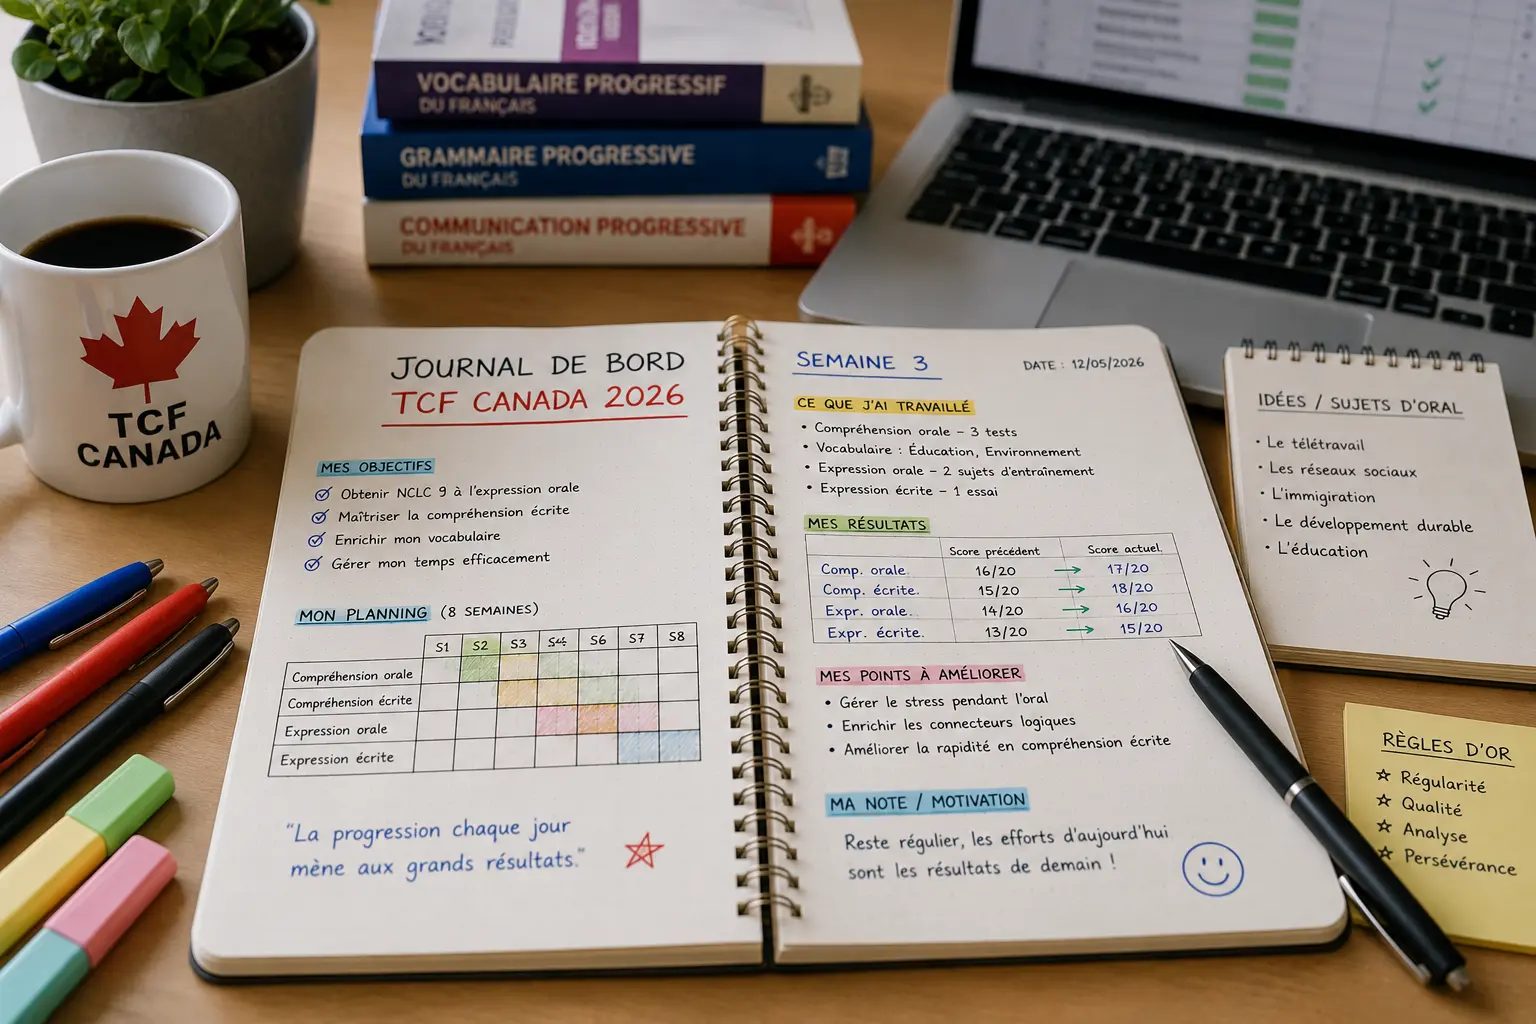 VOCABULAIRE PROGRESSIF
DU FRANÇAIS
GRAMMAIRE PROGRESSIVE
DU FRANÇAIS
COMMUNICATION PROGRESSIVE
DU FRANÇAIS
TCF
CANADA
JOURNAL DE BORD
TCF CANADA 2026
MES OBJECTIFS
Obtenir NCLC 9 à l'expression orale
Maîtriser la compréhension écrite
Enrichir mon vocabulaire
Gérer mon temps efficacement
MON PLANNING (8 SEMAINES)
S1 S2 S3 S6 S7 S8
Compréhension orale
Compréhension écrite
Expression orale
Expression écrite
"La progression chaque jour
mène aux grands résultats."
SEMAINE 3
DATE : 12/05/2026
CE QUE J'AI TRAVAILLÉ
• Compréhension orale – 3 tests
• Vocabulaire : Éducation, Environnement
• Expression orale – 2 sujets d'entraînement
• Expression écrite – 1 essai
MES RÉSULTATS
Score précédent Score actuel.
Comp. orale. 16/20 → 17/20
Comp. écrite. 15/20 → 18/20
Expr. orale. 14/20 → 16/20
Expr. écrite. 13/20 → 15/20
MES POINTS À AMÉLIORER
• Gérer le stress pendant l'oral
• Enrichir les connecteurs logiques
• Améliorer la rapidité en compréhension écrite
MA NOTE / MOTIVATION
Reste régulier, les efforts d'aujourd'hui
sont les résultats de demain !
IDÉES / SUJETS D'ORAL
• Le télétravail
• Les réseaux sociaux
• L'immigiration
• Le développement durable
• L'éducation
RÈGLES D'OR
☆ Régularité
☆ Qualité
☆ Analyse
☆ Persévérance